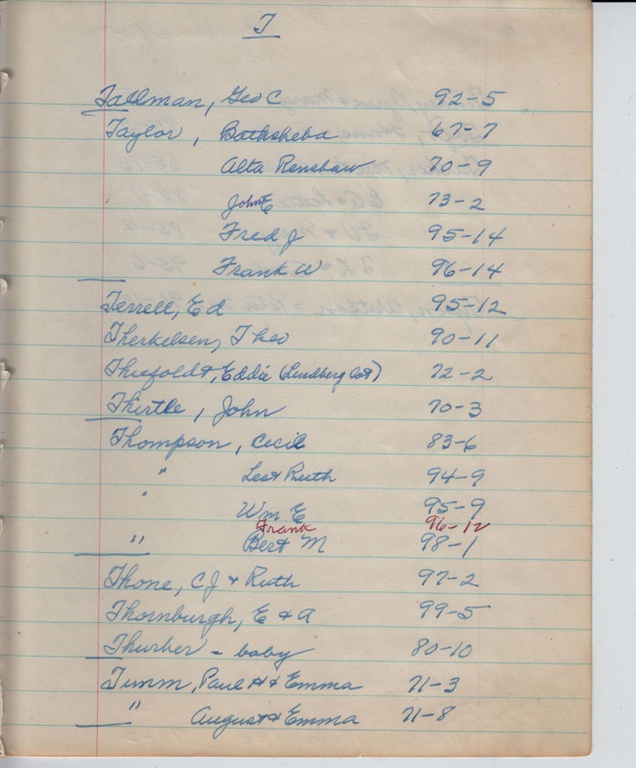 T
Tallman, Geo C 92-5
Taylor, Bathsheba 67-7
Alta Renshaw 70-9
John E 73-2
Fred J 95-14
Frank W 96-14
Terrell, Ed 95-12
Therkelsen, Theo 90-11
Thiefoldt, Eddie (Lundberg lot) 72-2
Thirtle, John 70-3
Thompson, Cecil 83-6
" Les & Ruth 94-9
" Wm E 95-9
Frank 96-12
" Bert M 98-1
Thone, C J & Ruth 97-2
Thornburgh, E & A 99-5
Thurber - baby 80-10
Timm, Paul H & Emma 71-3
" August & Emma 71-8